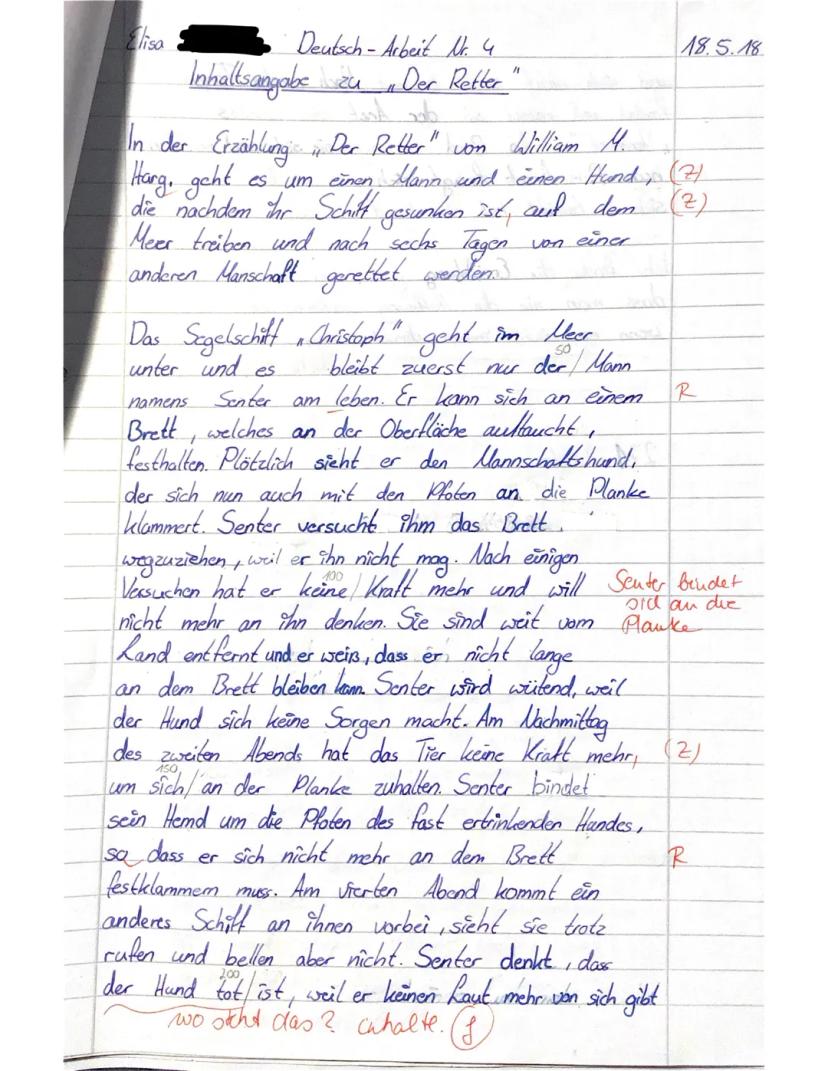 Elisa Deutsch-Arbeit Nr. 4 18.5.18
Inhaltsangabe zu „Der Retter"
In der Erzählung „Der Retter" von William M.
Harg, geht es um einen Mann und einen Hund, (Z)
die nachdem ihr Schiff gesunken ist, auf dem (Z)
Meer treiben und nach sechs Tagen von einer
anderen Manschaft gerettet werden.
Das Segelschiff „Christoph" geht im Meer
unter und es bleibt zuerst nur der 50 / Mann
namens Senter am leben. Er kann sich an einem R
Brett, welches an der Oberfläche auftaucht,
festhalten. Plötzlich sieht er den Mannschaftshund,
der sich nun auch mit den Pfoten an die Planke
klammert. Senter versucht ihm das Brett
wegzuziehen, weil er ihn nicht mag. Nach einigen
Versuchen hat er keine 100 / Kraft mehr und will Senter bindet
nicht mehr an ihn denken. Sie sind weit vom sich an die
Planke
Land entfernt und er weiß, dass er nicht lange
an dem Brett bleiben kann. Senter wird wütend, weil
der Hund sich keine Sorgen macht. Am Nachmittag
des zweiten Abends hat das Tier keine Kraft mehr, (Z)
um sich 150 / an der Planke zuhalten. Senter bindet
sein Hemd um die Pfoten des fast ertrinkenden Hundes,
so dass er sich nicht mehr an dem Brett R
festklammern muss. Am vierten Abend kommt ein
anderes Schiff an ihnen vorbei, sieht sie trotz
rufen und bellen aber nicht. Senter denkt, dass
der Hund tot 200 / ist, weil er keinen Laut mehr von sich gibt
wo steht das? Inhalte. f